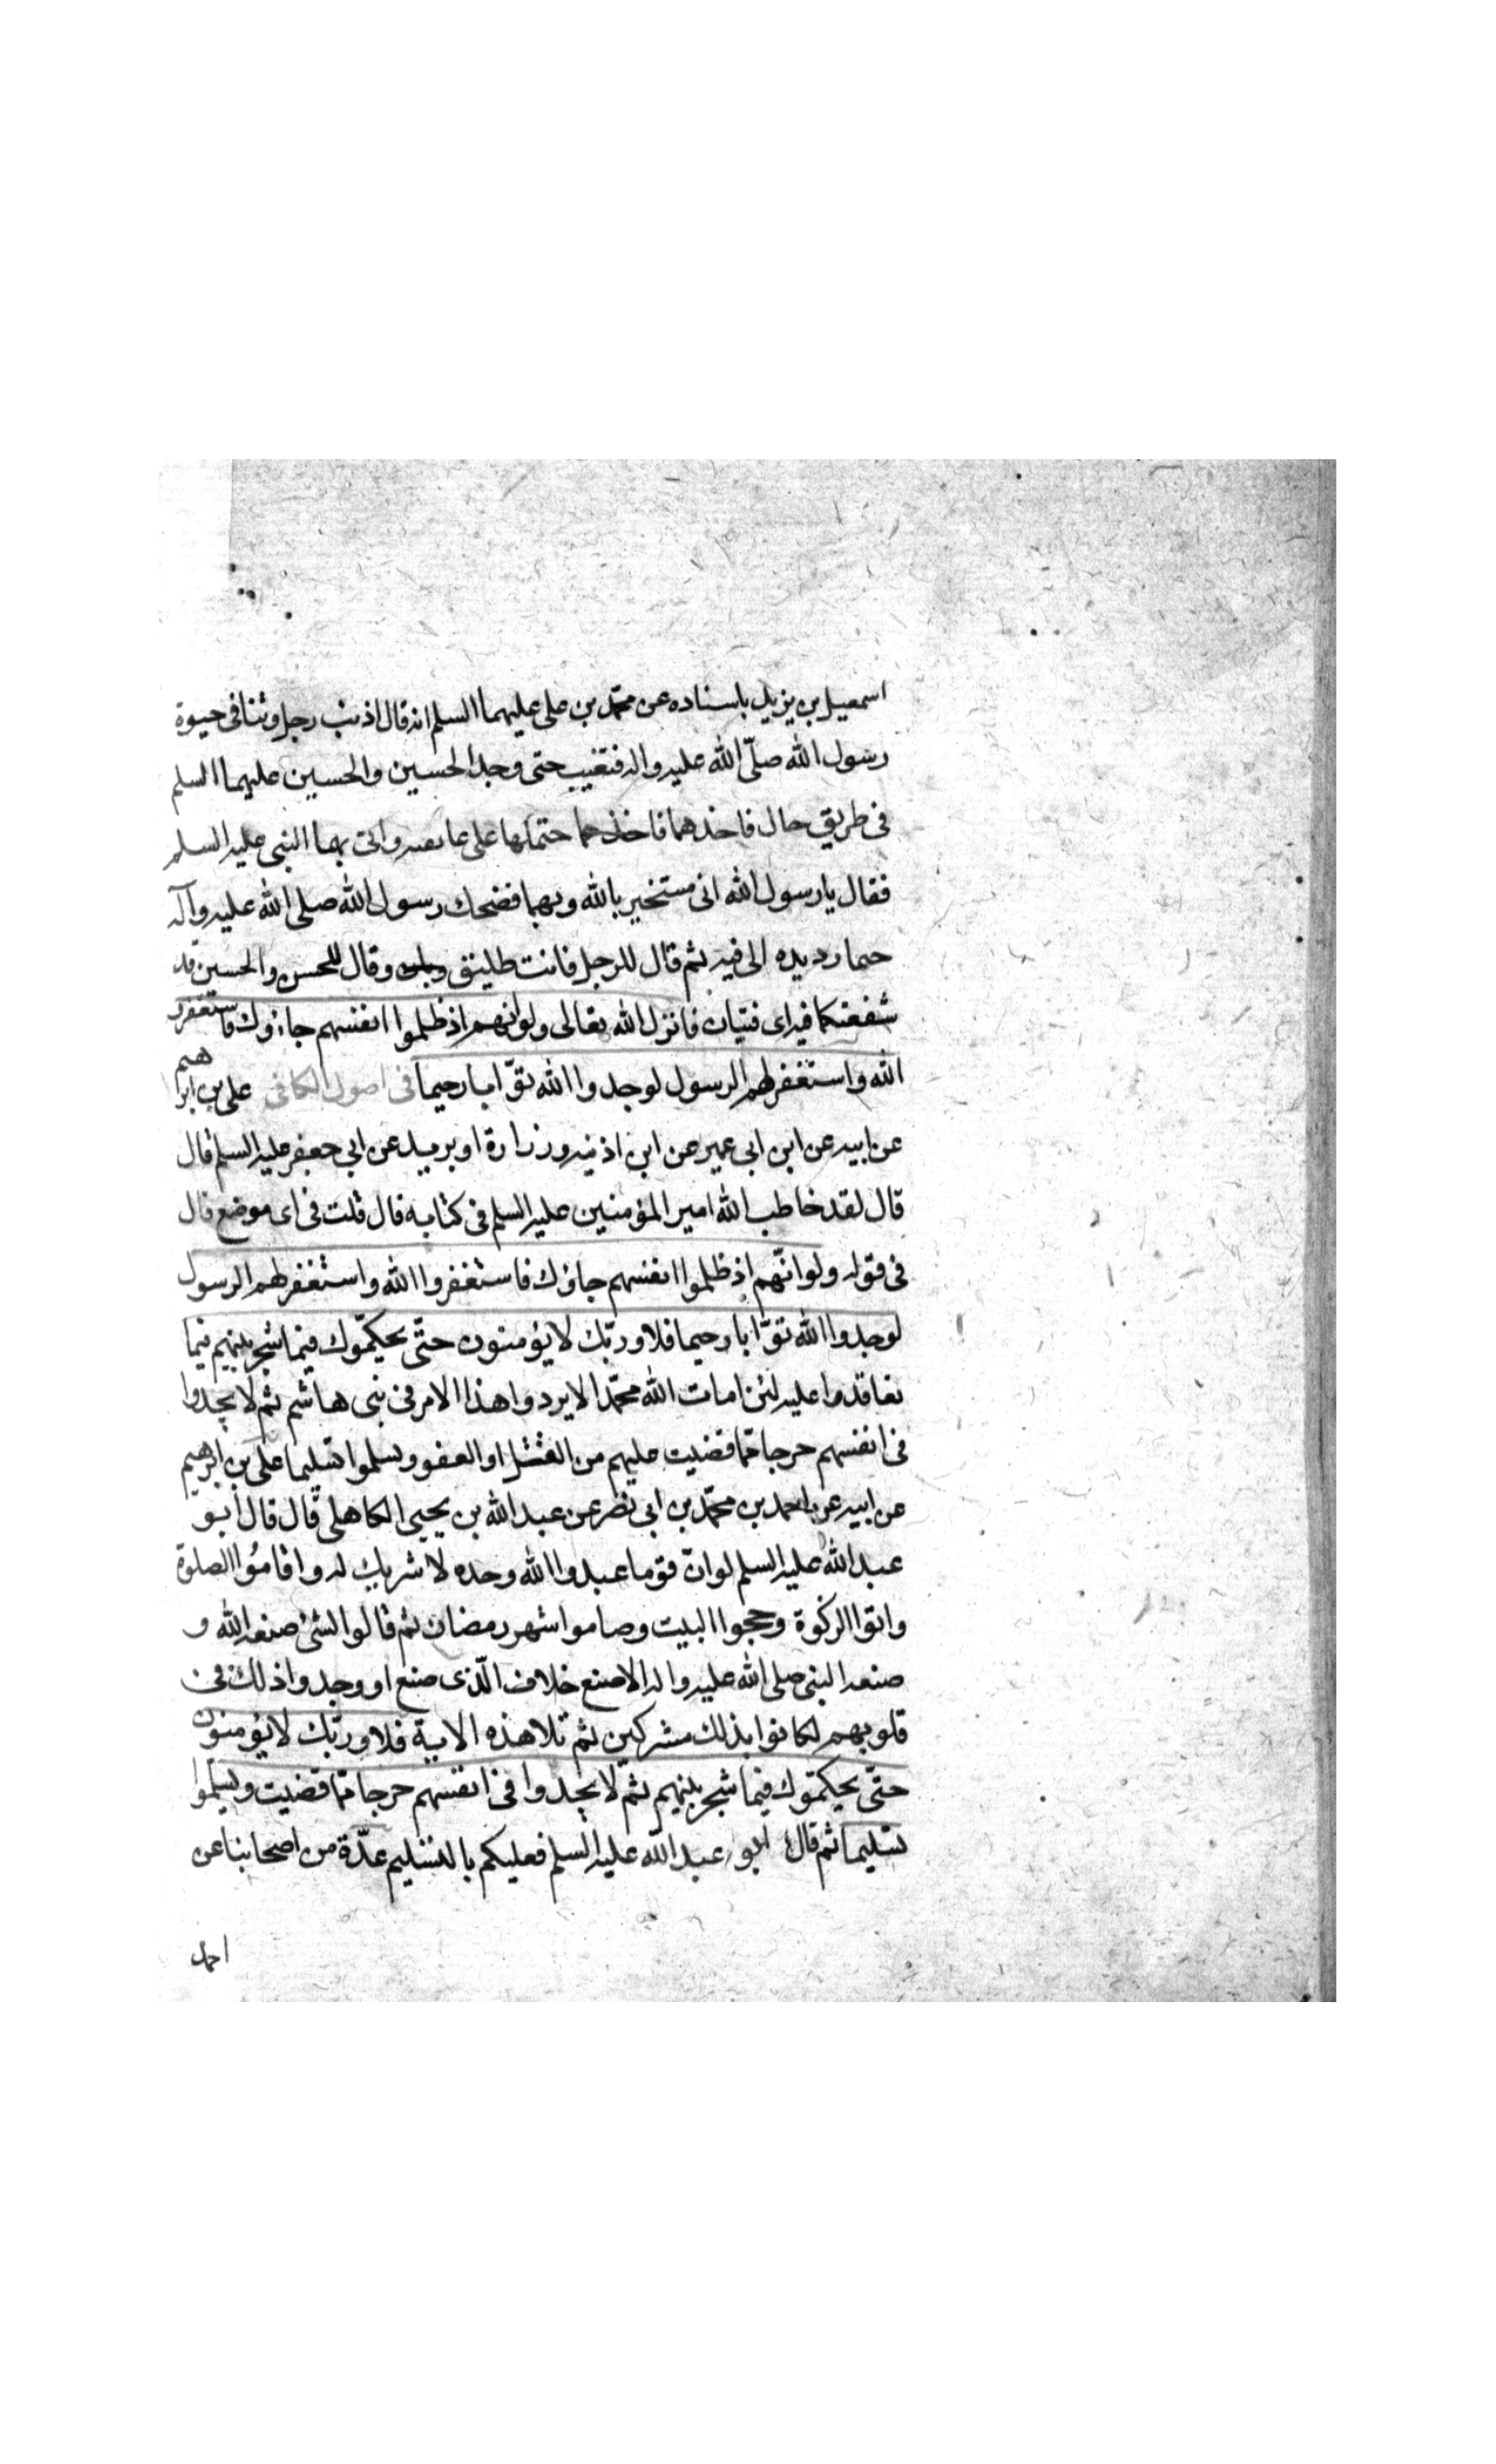 اسمعيل بن يزيد باسناده عن محمّد بن على عليهما السلم انه قال اذنب رجل وثنا فى حيوة
رسول الله صلّى الله عليه واله فتغيب حتى وجد الحسين والحسين عليهما السلم
فى طريق خال فاخذهما فاخذهما حتملها على عاتقيه واتى بهما النبى عليه السلم
فقال يا رسول الله انى مستخير بالله وبهما فضحك رسول الله صلى الله عليه وآله
حما رد يده الى فيه ثم قال للرجل فانت طليق وقال للحسن والحسين قد
شفعتكما فيه اى فتيان فانزل الله تعالى ولو انهم اذ ظلموا انفسهم جاءوك فاستغفروا
الله واستغفر لهم الرسول لوجدوا الله توّابا رحيما فى اصول الكافى على بن ابرهيم
عن ابيه عن ابن ابى عمير عن ابن اذينه وزرارة او بريد عن ابى جعفر عليه السلم قال
قال لقد خاطب الله امير المؤمنين عليه السلم فى كتابه قال قلت فى اى موضع قال
فى قوله ولو انّهم اذ ظلموا انفسهم جاؤك فاستغفروا الله واستغفر لهم الرسول
لوجدوا الله توّابا رحيما فلا وربّك لا يؤمنون حتّى يحكمّوك فيما شجر بينهم فيما
تعاقدوا عليه لئن امات الله محمّدا لا يردوا هذا الامر فى بنى هاشم ثم لا يجدوا
فى انفسهم حرجا ممّا قضيت عليهم من القتل او العفو ويسلموا تسليما على بن ابرهيم
عن ابيه عن احمد بن محمّد بن ابى نصر عن عبد الله بن يحيى الكاهلى قال قال ابو
عبد الله عليه السلم لو ان قوما عبدوا الله وحده لا شريك له واقاموا الصلوة
واتوا الزكوة وحجوا البيت وصاموا شهر رمضان ثم قالوا لشئ صنعه الله و
صنعه النبى صلى الله عليه واله الا صنع خلاف الّذى صنع او وجدوا ذلك فى
قلوبهم لكانوا بذلك مشركين ثم تلا هذه الاية فلا وربّك لا يؤمنون
حتّى يحكمّوك فيما شجر بينهم ثم لا يجدوا فى انفسهم حرجا ممّا قضيت ويسلّموا
تسليما ثم قال ابو عبد الله عليه السلم فعليكم بالتسليم عدّة من اصحابنا عن
احمد